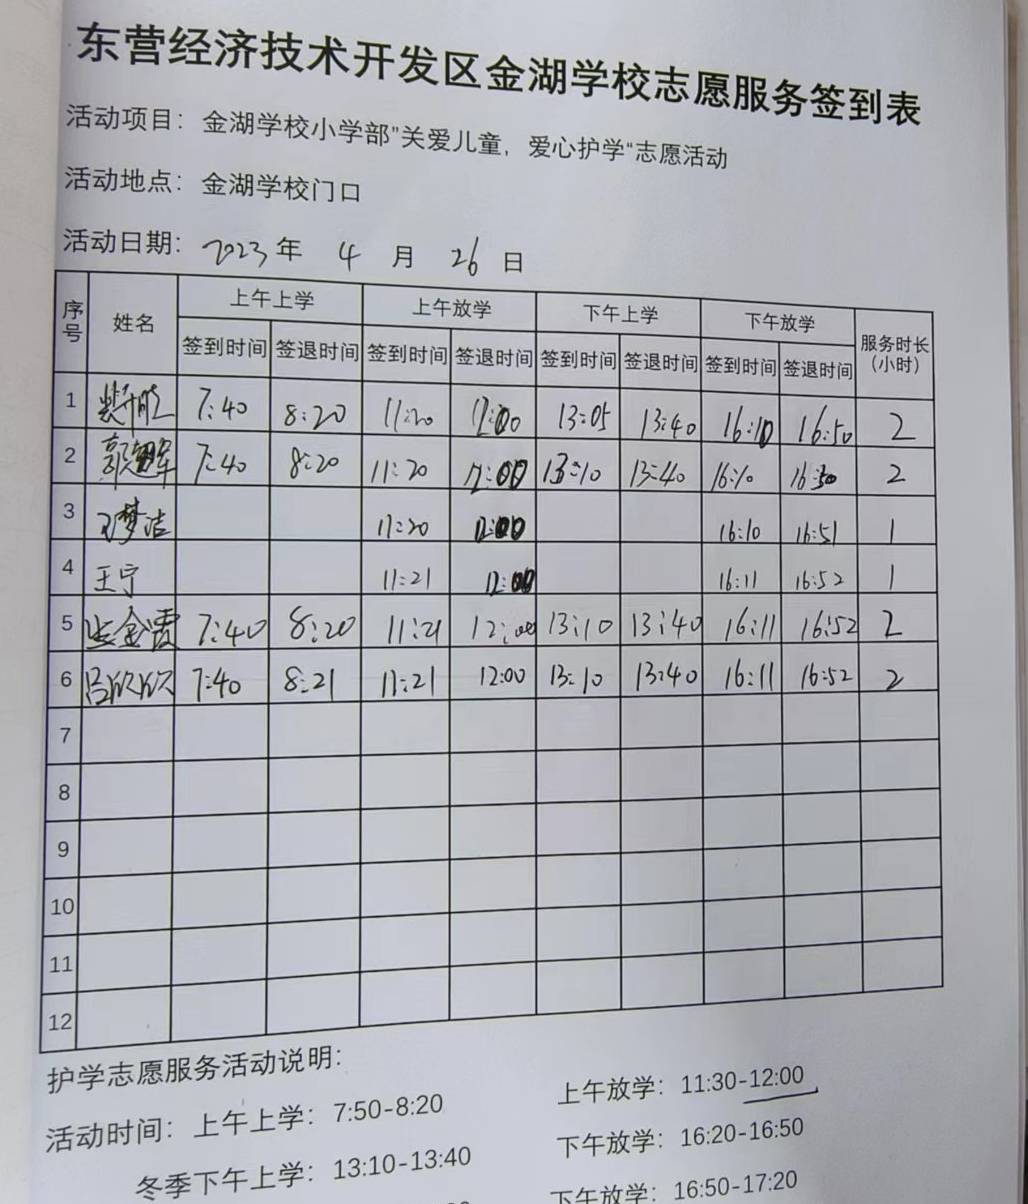 东营经济技术开发区金湖学校志愿服务签到表
活动项目：金湖学校小学部"关爱儿童，爱心护学"志愿活动
活动地点：金湖学校门口
活动日期：2023年 4 月 26 日
序号 姓名 上午上学 上午放学 下午上学 下午放学 服务时长（小时）
签到时间 签退时间 签到时间 签退时间 签到时间 签退时间 签到时间 签退时间
1 7:40 8:20 11:20 12:00 13:05 13:40 16:10 16:50 2
2 7:40 8:20 11:20 12:00 13:10 13:40 16:10 16:50 2
3 王梦洁 11:20 12:00 16:10 16:51 1
4 王宁 11:21 12:00 16:11 16:52 1
5 7:40 8:20 11:21 12:00 13:10 13:40 16:11 16:52 2
6 吕欣欣 7:40 8:21 11:21 12:00 13:10 13:40 16:11 16:52 2
7
8
9
10
11
12
护学志愿服务活动说明：
活动时间：上午上学：7:50-8:20 上午放学：11:30-12:00
冬季下午上学：13:10-13:40 下午放学：16:20-16:50
下午放学：16:50-17:20